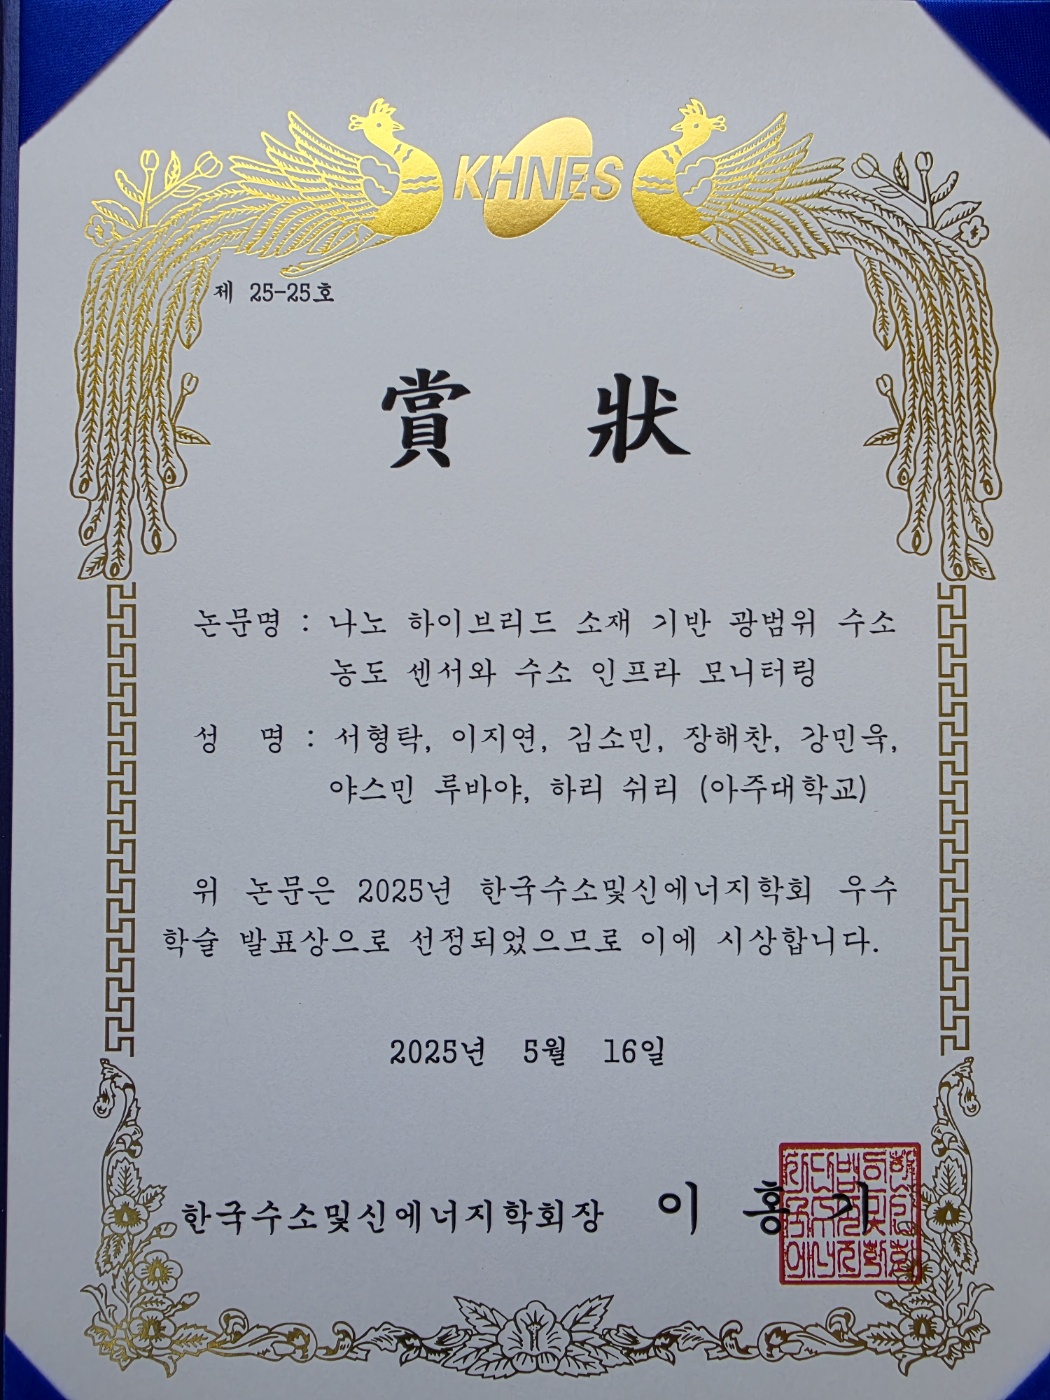 KHNES
제 25-25호
賞 狀
논문명 : 나노 하이브리드 소재 기반 광범위 수소
농도 센서와 수소 인프라 모니터링
성 명 : 서형탁, 이지연, 김소민, 장해찬, 강민욱,
야스민 루바야, 하리 쉬리 (아주대학교)
위 논문은 2025년 한국수소및신에너지학회 우수
학술 발표상으로 선정되었으므로 이에 시상합니다.
2025년 5월 16일
한국수소및신에너지학회장 이 홍 기